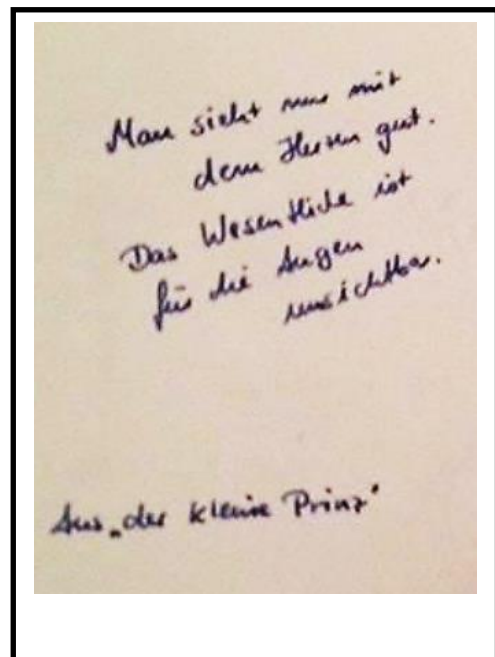 Man sieht nur mit
dem Herzen gut.
Das Wesentliche ist
für die Augen
unsichtbar.
Aus „der kleine Prinz"